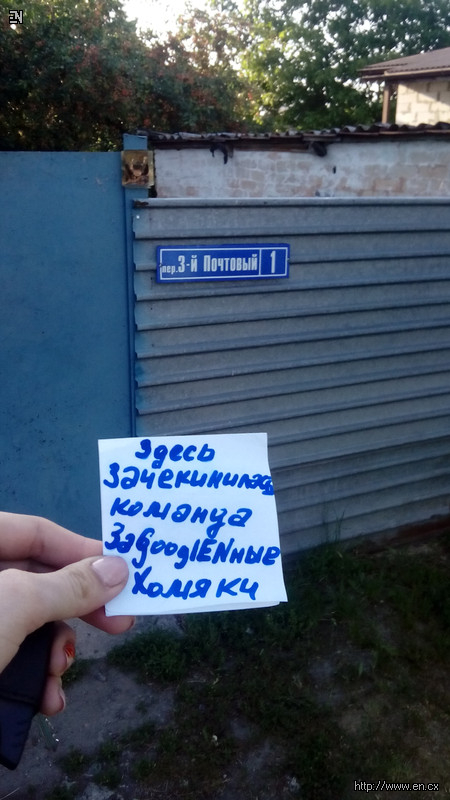 EN
пер.3-й Почтовый 1
Здесь
Зачекинилась
команда
ЗаGooglENные
Хомяки
http://www.en.cx